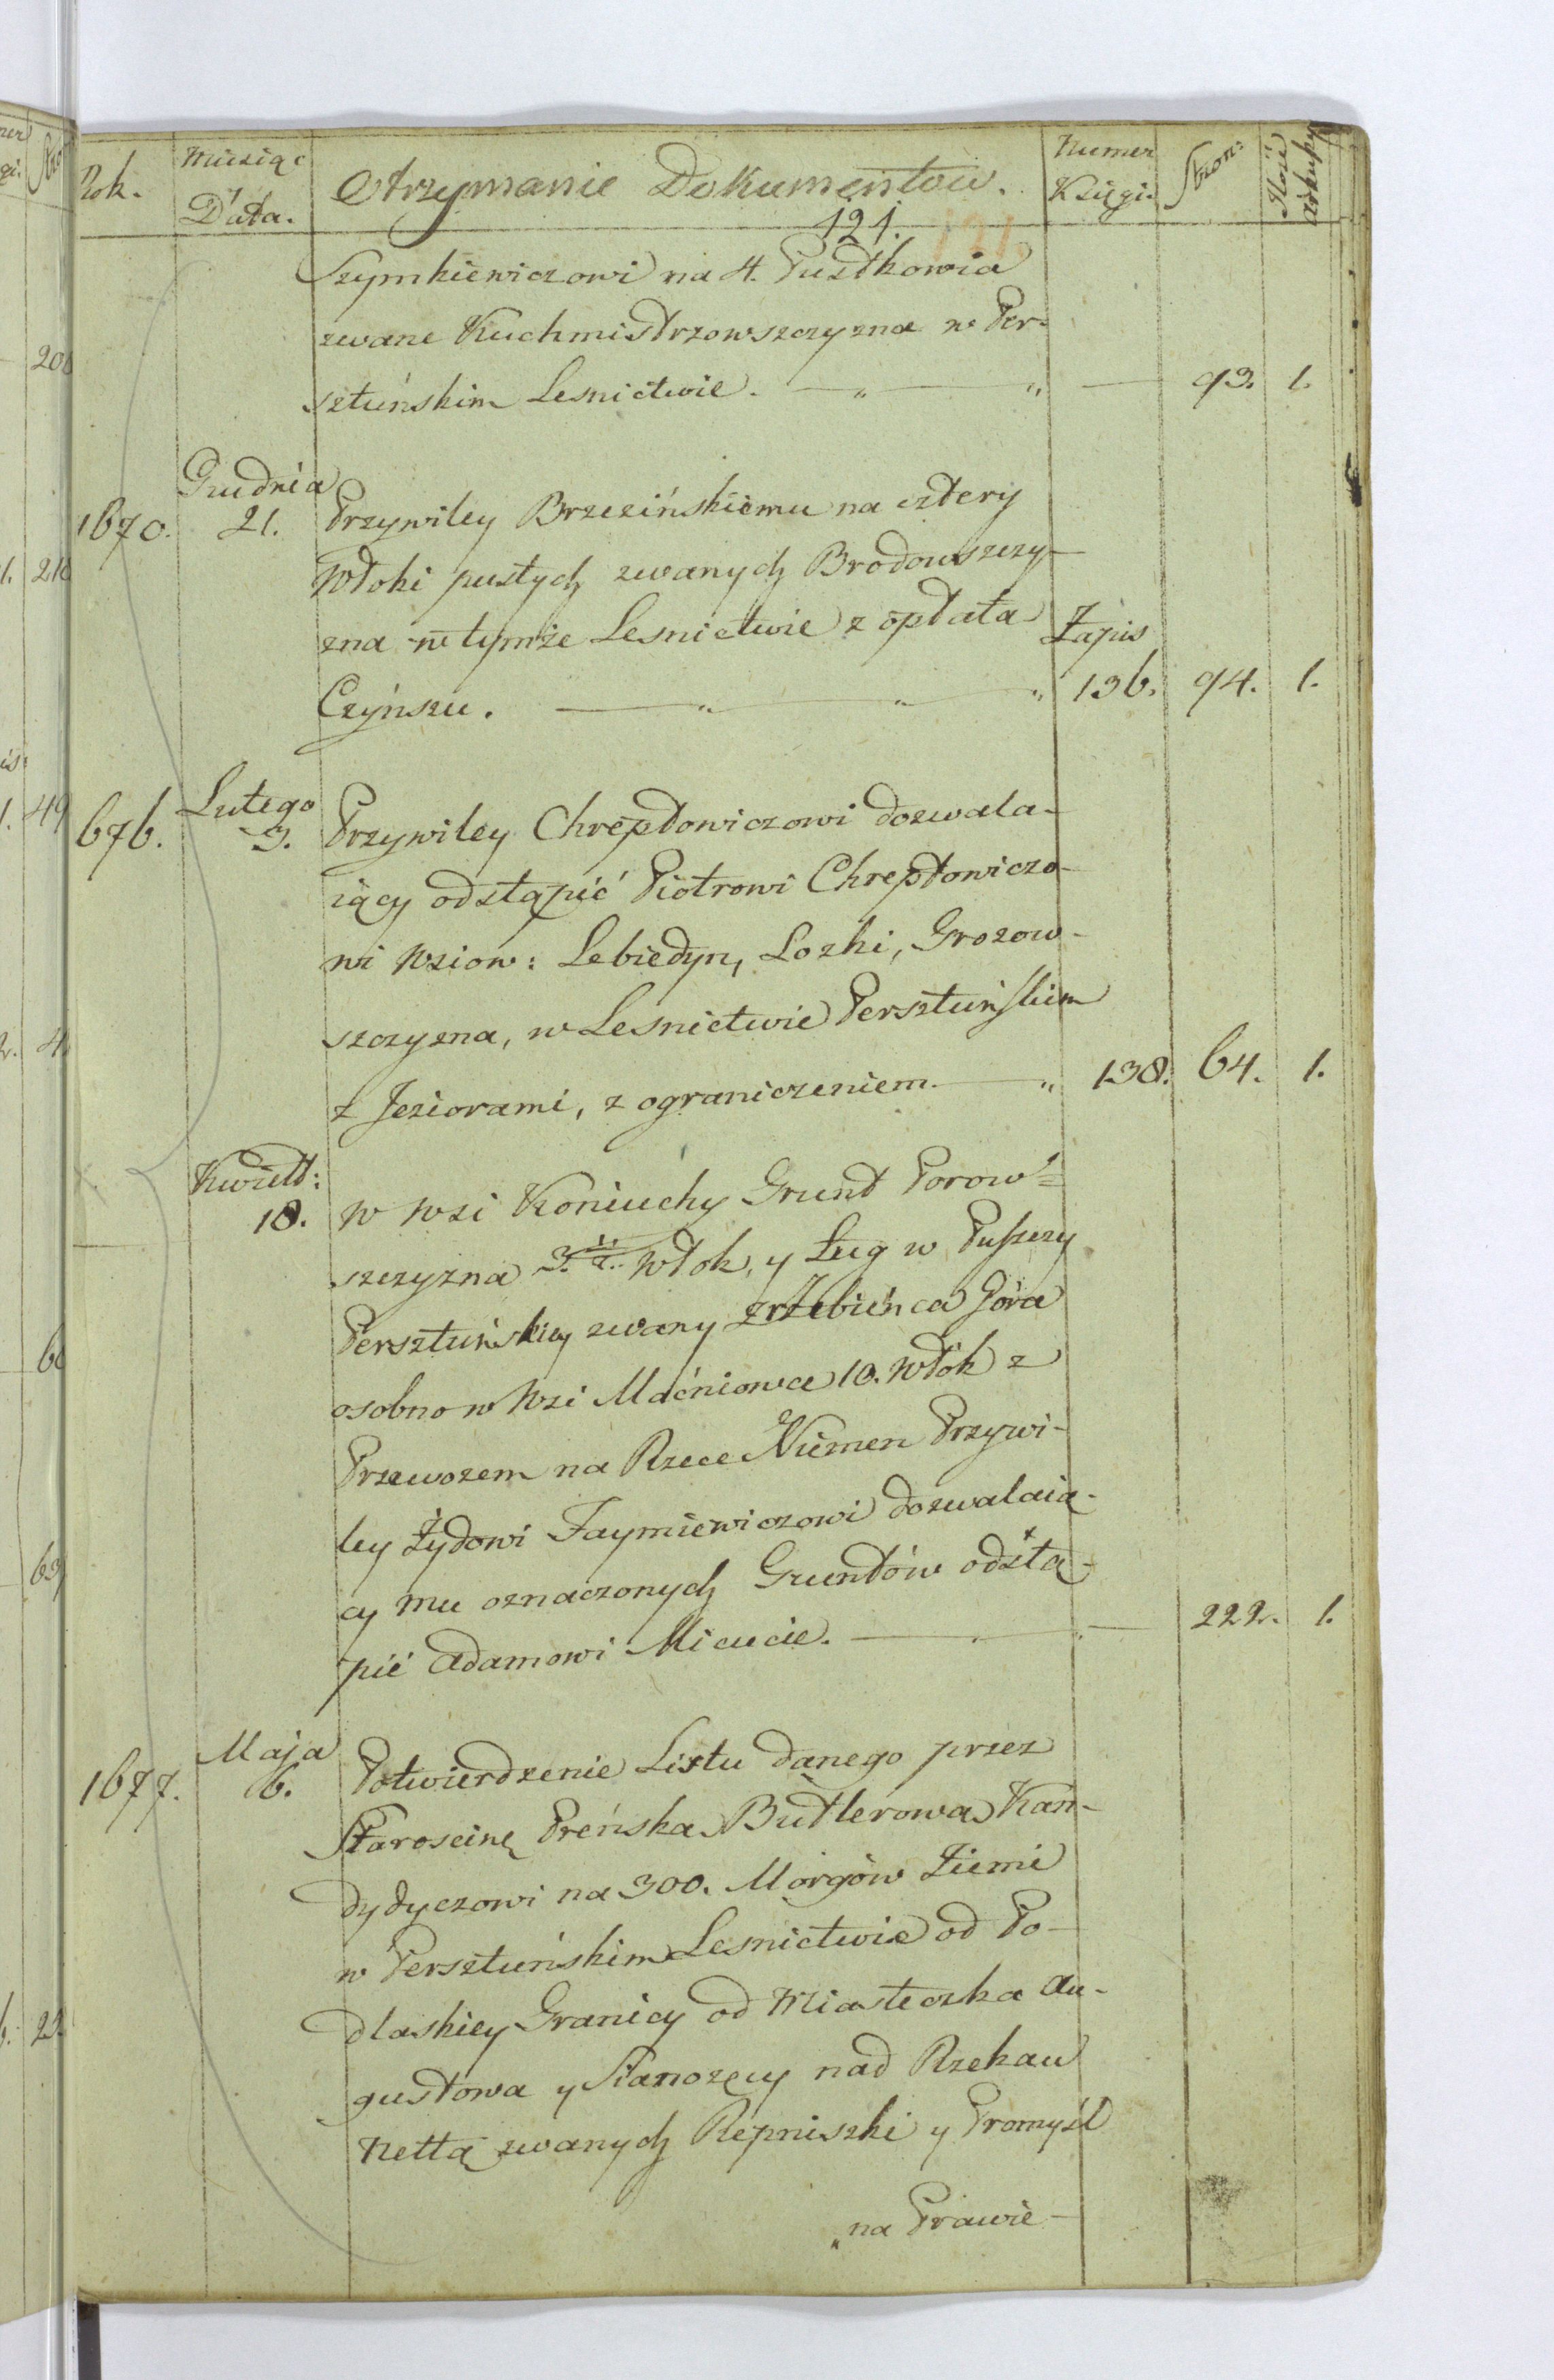 Rok. Miesiąc Data. Otrzymanie Dokumentow. Numer Księgi. Stron: Ilość Arkuszy
121.
Szymkiewiczowi na 4. Pustkowia
zwane Kuchmistrzowszczyzna w Per-
sztuńskim Lesnictwie. — „ — „ — 93. 1.
Grudnia
1670. 21. Przywiley Brzezińskiemu na cztery
Włoki pustych zwanych Brodowszczy-
zna w tymże Lesnictwie z opłata Zapis
Czynszu. — „ „ — „ 136. 94. 1.
Lutego
676. 3. Przywiley Chreptowiczowi dozwala-
iący odstąpić Piotrowi Chreptowiczo-
wi Wsiow: Lebiedyn, Lozki, Grozow-
szczyzna, w Lesnictwie Persztuńskim
z Jeziorami, z ograniczeniem — „ 138. 64. 1.
Kwiet:
18. W Wsi Koniuchy Grunt Porow=
szczyzna 3. Włok, y Ług w Puszczy
Persztuńskiey zwany Zrzebieńca Góra
osobno w Wsi Maćniowce 10. Włok z
Przewozem na Rzece Niemen Przywi-
ley Żydowi Faymiewiczowi dozwalaią-
cy mu oznaczonych Gruntów odstą-
pić Adamowi Micucie. — „ — 222. 1.
Maja
1677. 6. Potwierdzenie Listu danego przez
Staroscinę Preńska Butlerowa Kan-
dydyczowi na 300. Morgów Ziemi
w Persztuńskim Lesnictwie od Po-
dlaskiey Granicy od Miasteczka Au-
gustowa y Sianozęcy nad Rzekau
Nettą zwanych Repniszki y Promyśl
„na Prawie-